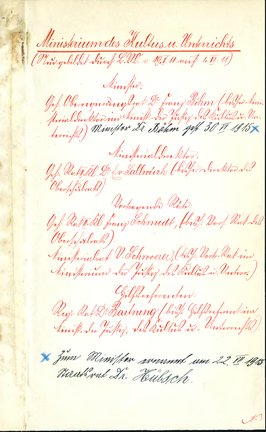 Ministerium des Kultus u. Unterrichts
(Neugebildet durch
Minister:
Geh. Oberregierungsrat Dr. Franz Böhm (bisher
im Minist. der Justiz, des Kultus u. Un-
terrichts) Minister Dr. Böhm gest 30 VI 1915 ×
Ministerialdirektor:
Geh. Rat Dr. (bisher Direktor des
Oberschulrats)
Vortragende Räte:
Geh. Franz Schmidt, (bish. Vors. Rat des
Oberschulrats)
Ministerialrat V. Schwoerer, (bish. Vortr. Rat im
Ministerium der Justiz, des Kultus u. Unterr.)
Hilfsreferenten
Reg. Rat Dr. Bartning (bisher Hilfsreferent im
Minist. der Justiz, des Kultus u. Unterrichts)
× Zum Minister ernannt am 22 VII 1915
Staatsrat Dr. Hübsch.